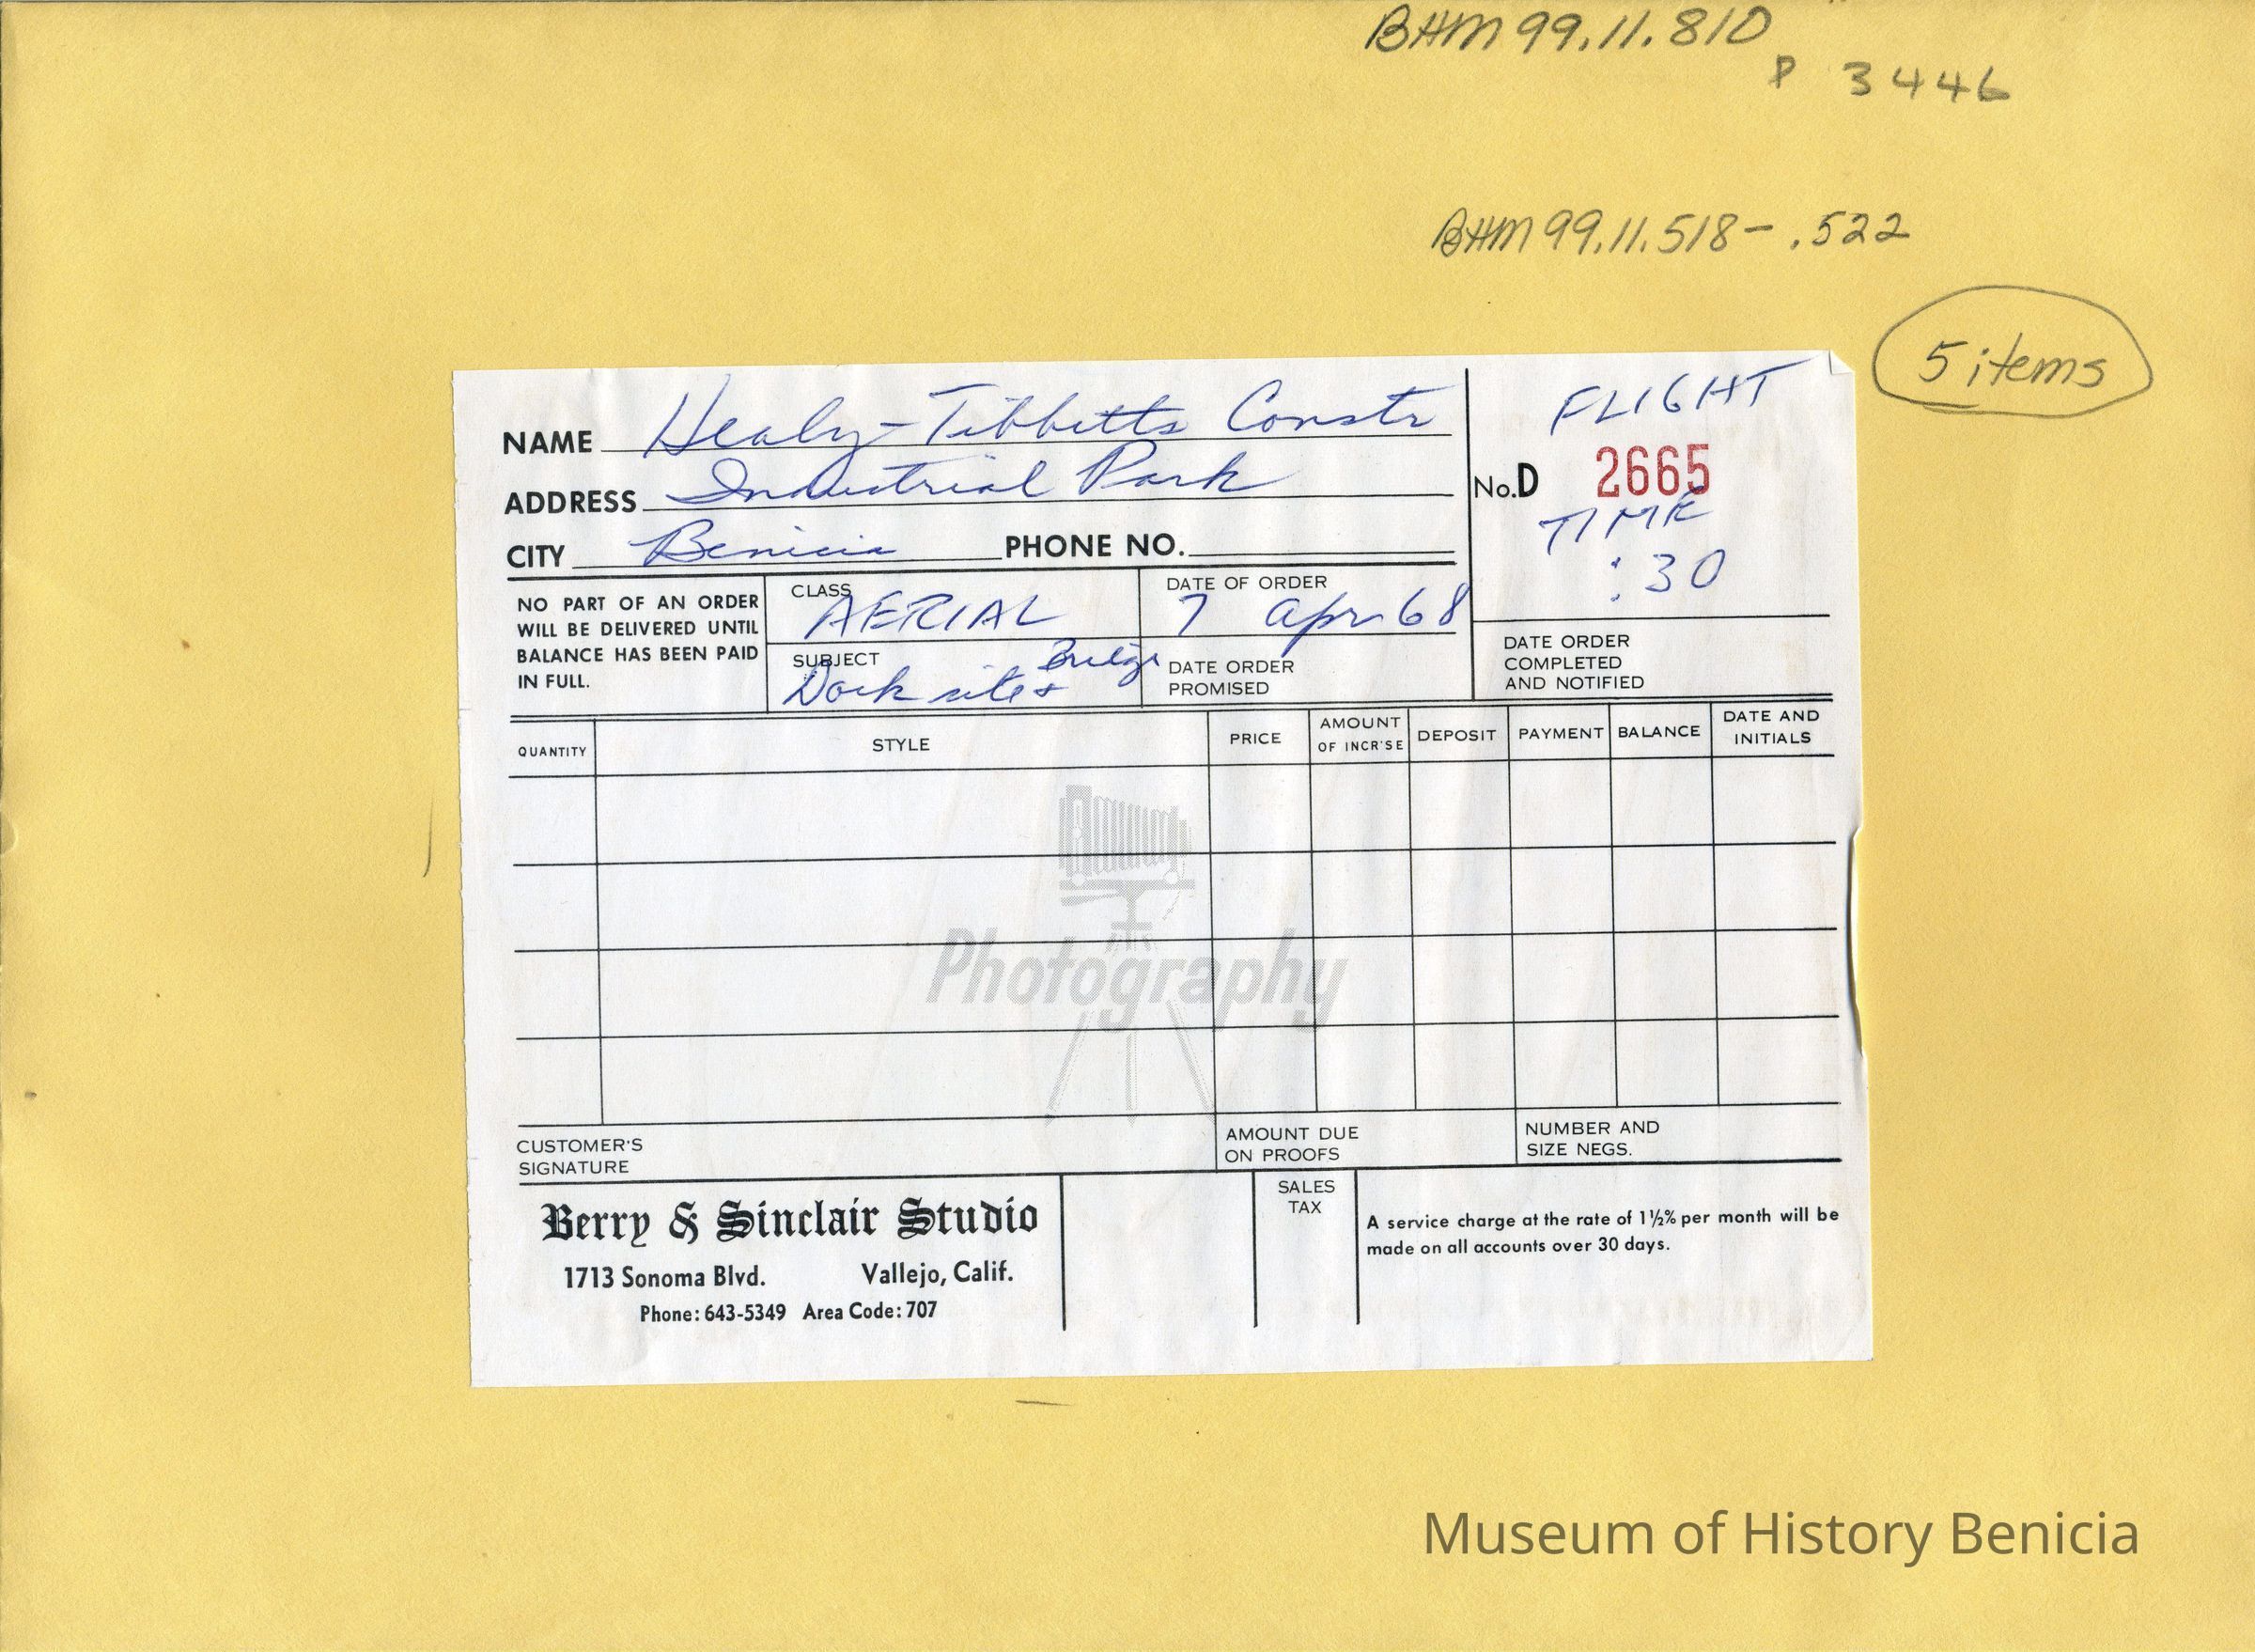 BHM 99.11.810
P 3446
BHM 99.11.518 - .522
5 items
NAME Healy-Tibbetts Constr
ADDRESS Industrial Park
CITY Benicia PHONE NO.
FLIGHT
No. D 2665
TIME
:30
NO PART OF AN ORDER
WILL BE DELIVERED UNTIL
BALANCE HAS BEEN PAID
IN FULL.
CLASS
AERIAL
DATE OF ORDER
7 Apr 68
SUBJECT
Dock site & Bridge
DATE ORDER
PROMISED
DATE ORDER
COMPLETED
AND NOTIFIED
QUANTITY
STYLE
PRICE
AMOUNT
OF INCR'SE
DEPOSIT
PAYMENT
BALANCE
DATE AND
INITIALS
Photography
CUSTOMER'S
SIGNATURE
AMOUNT DUE
ON PROOFS
NUMBER AND
SIZE NEGS.
Berry & Sinclair Studio
1713 Sonoma Blvd. Vallejo, Calif.
Phone: 643-5349 Area Code: 707
SALES
TAX
A service charge at the rate of 1½% per month will be
made on all accounts over 30 days.
Museum of History Benicia